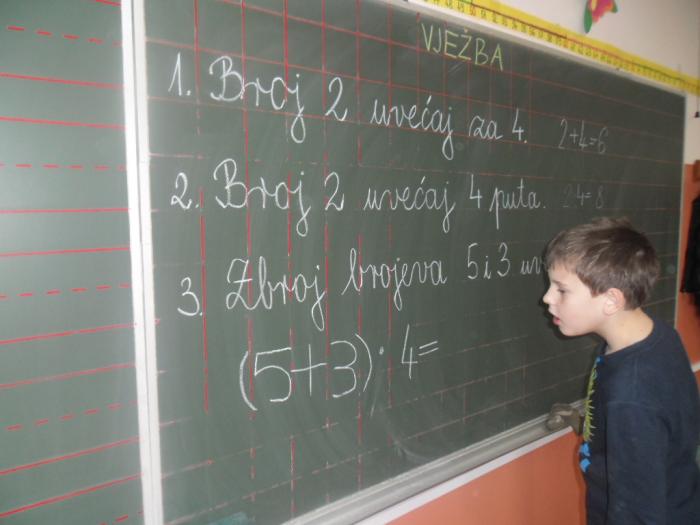 VJEŽBA
1. Broj 2 uvećaj za 4. 2+4=6
2. Broj 2 uvećaj 4 puta. 2·4=8
3. Zbroj brojeva 5 i 3
(5+3)·4=